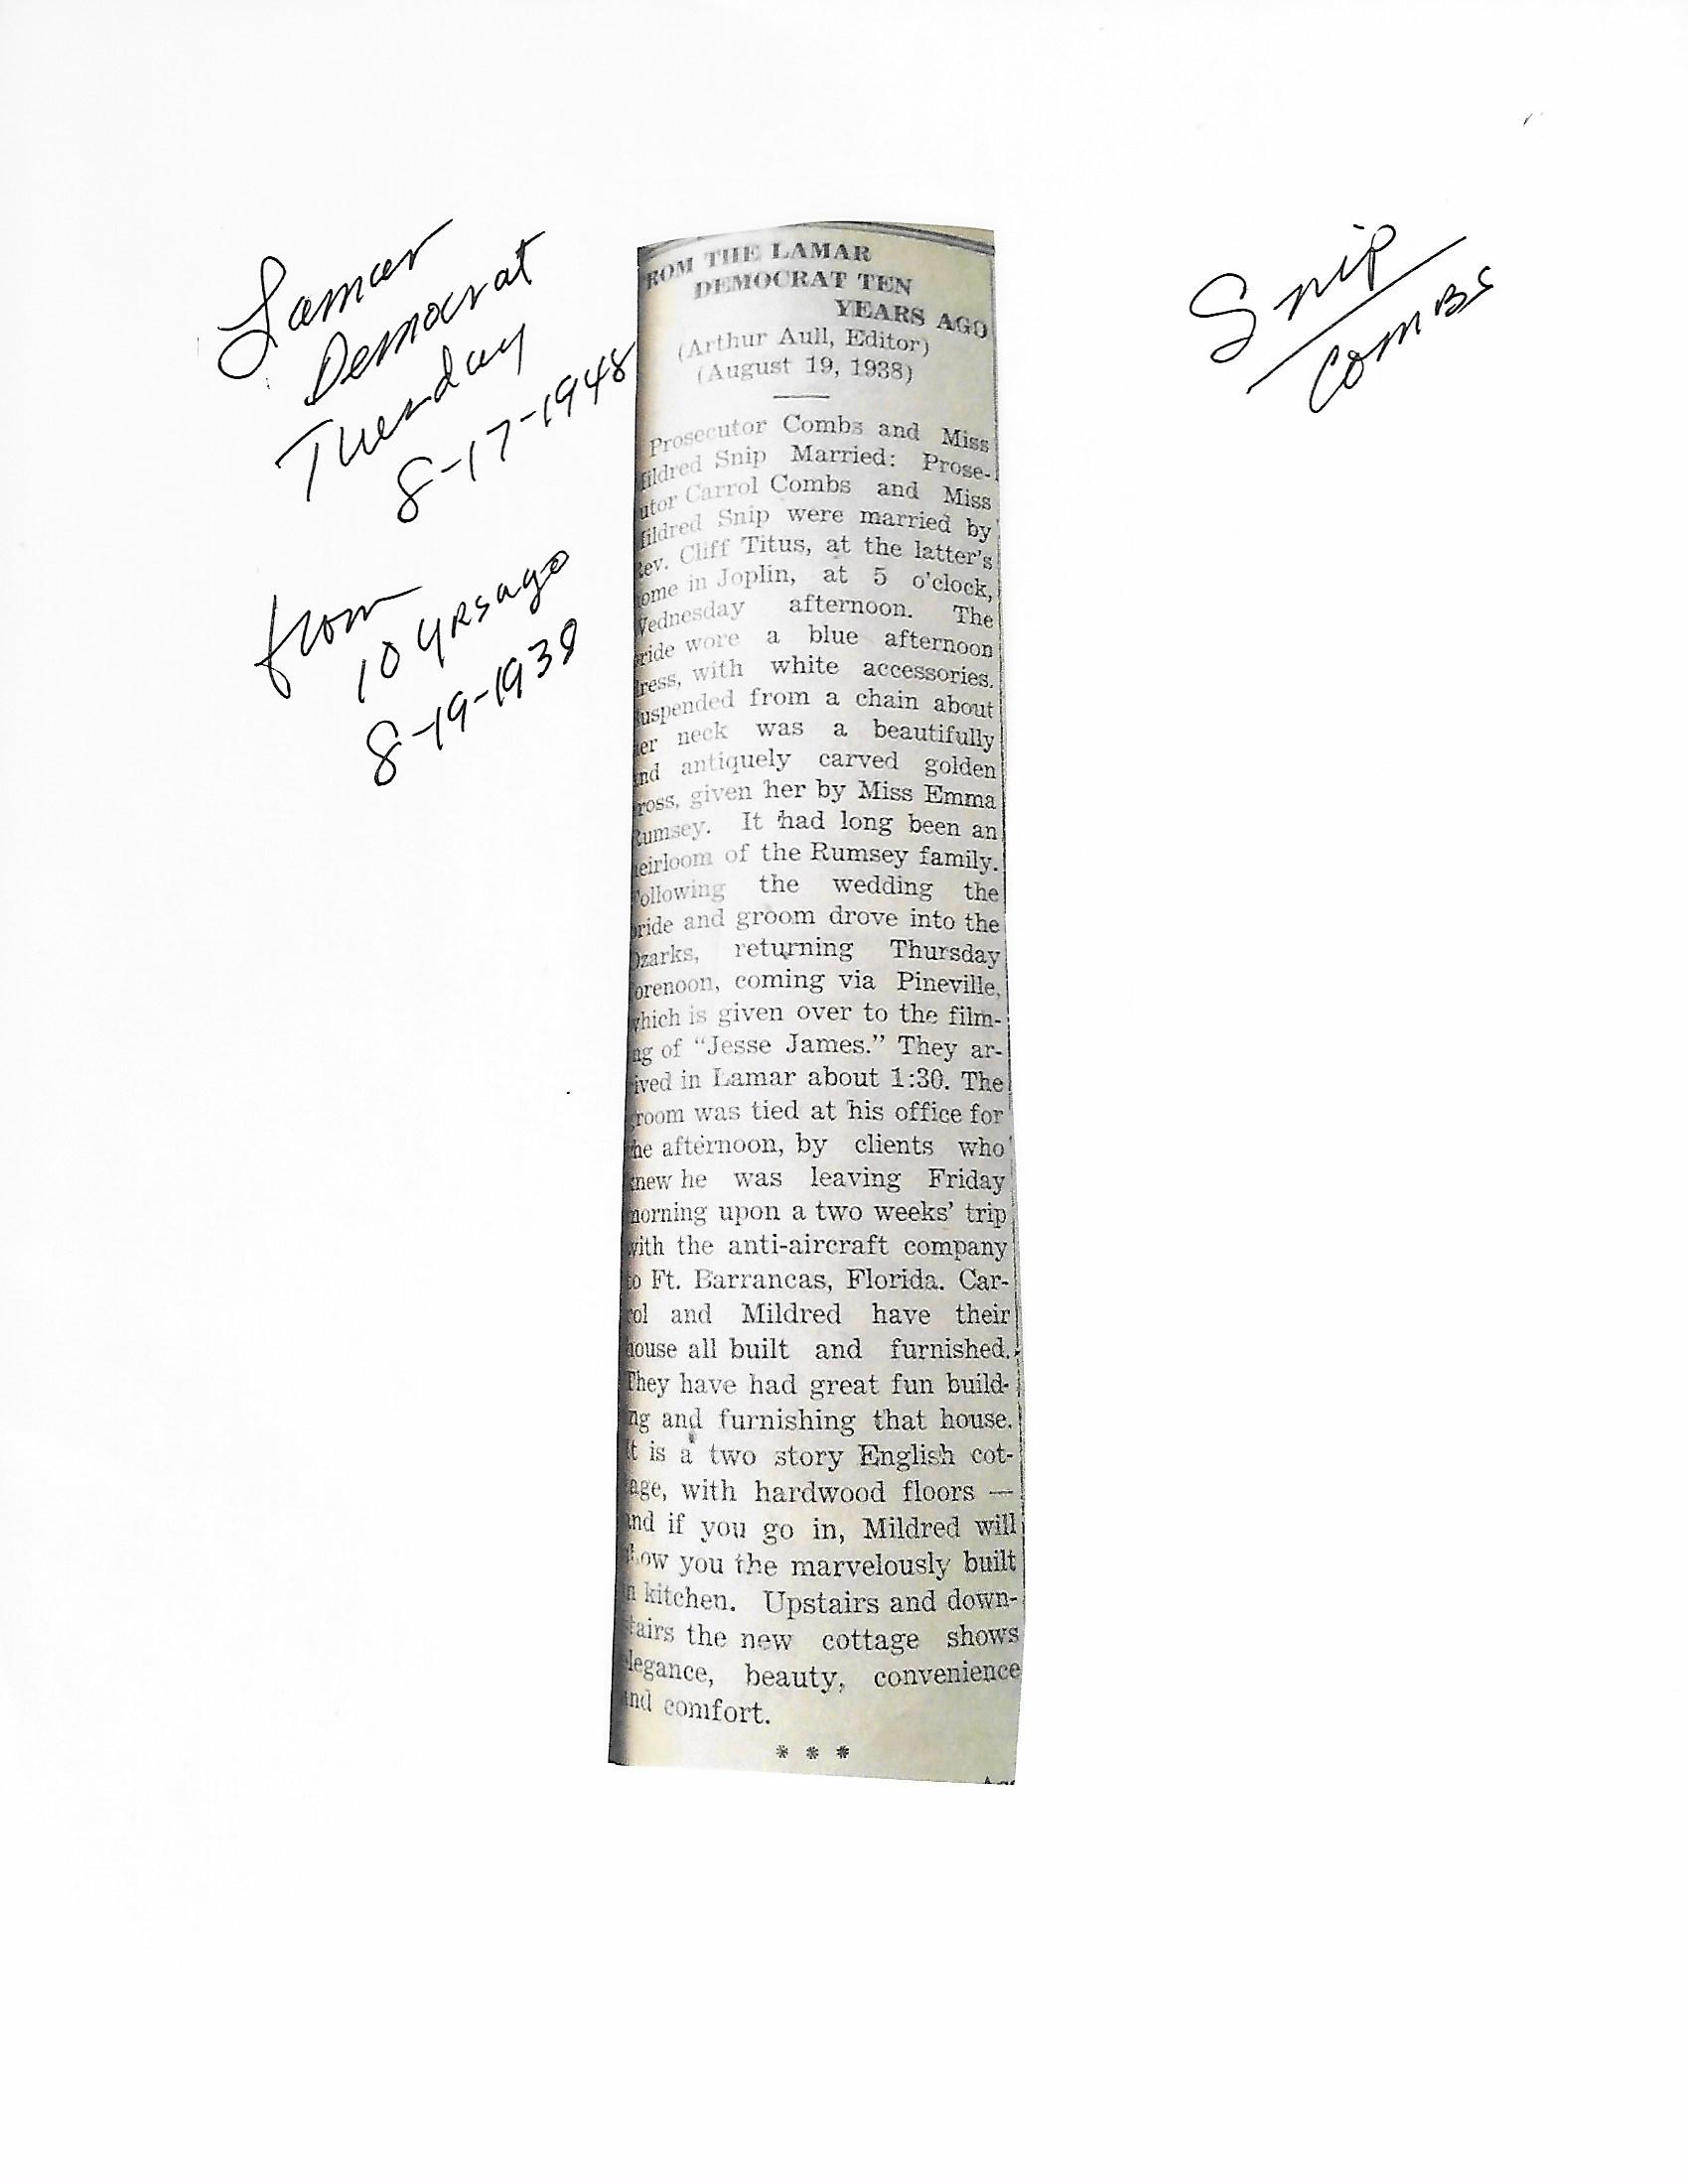 Lamar
Democrat
Tuesday
8-17-1948
from
10 yrs ago
8-19-1938
Snip
Combs
ROM THE LAMAR
DEMOCRAT TEN
YEARS AGO
(Arthur Aull, Editor)
(August 19, 1938)
Prosecutor Combs and Miss
ildred Snip Married: Prose-
utor Carrol Combs and Miss
ildred Snip were married by
ev. Cliff Titus, at the latter's
ome in Joplin, at 5 o'clock,
Wednesday afternoon. The
ride wore a blue afternoon
ress, with white accessories.
uspended from a chain about
er neck was a beautifully
nd antiquely carved golden
ross, given her by Miss Emma
Rumsey. It had long been an
eirloom of the Rumsey family.
ollowing the wedding the
ride and groom drove into the
Ozarks, returning Thursday
orenoon, coming via Pineville,
which is given over to the film-
ng of "Jesse James." They ar-
ived in Lamar about 1:30. The
room was tied at his office for
he afternoon, by clients who
new he was leaving Friday
morning upon a two weeks' trip
with the anti-aircraft company
o Ft. Barrancas, Florida. Car-
rol and Mildred have their
house all built and furnished.
They have had great fun build-
ng and furnishing that house.
t is a two story English cot-
age, with hardwood floors —
nd if you go in, Mildred will
how you the marvelously built
n kitchen. Upstairs and down-
tairs the new cottage shows
legance, beauty, convenience
and comfort.
* * *